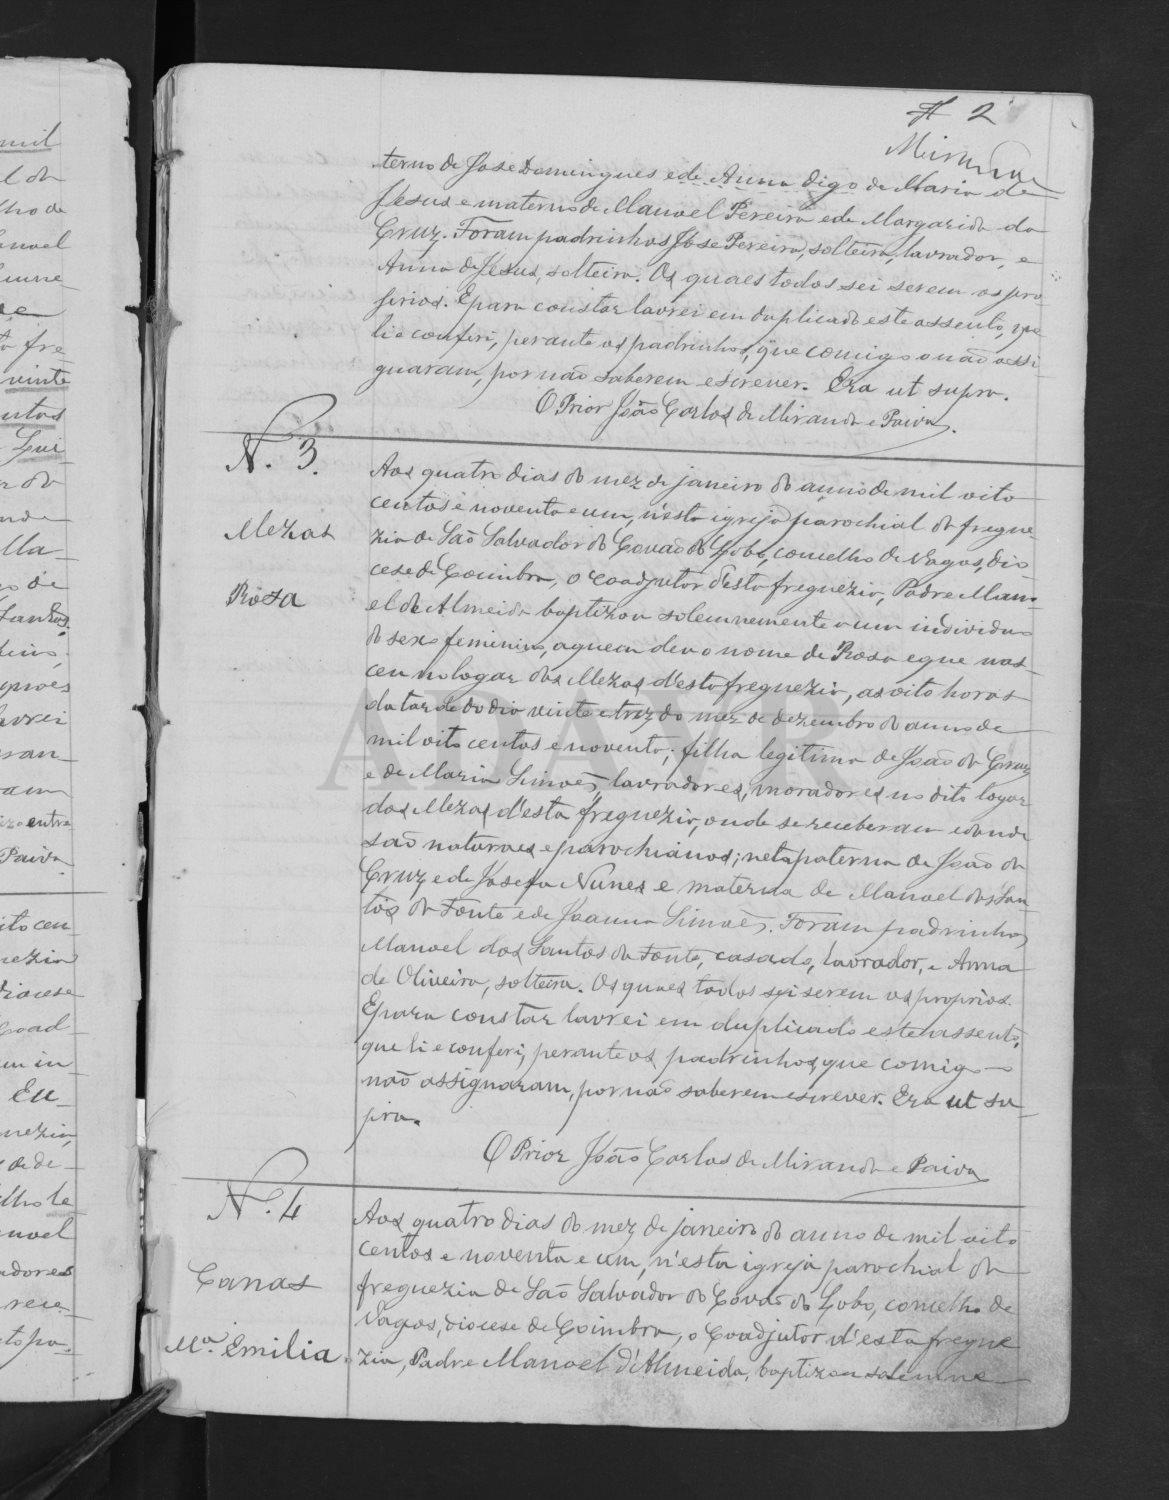 # 2
Miranda
terno de Jose Domingues e de Anna digo de Maria de
Jesus e materno de Manoel Pereira e de Margarida da
Cruz. Foram padrinhos Jose Pereira, solteiro, lavrador, e
Anna de Jesus, solteira. Os quaes todos sei serem os pro-
prios. E para constar lavrei em duplicado este assento, que
li e conferi, perante os padrinhos, que comigo o não assi-
gnaram, por não saberem escrever. Era ut supra.
O Prior João Carlos de Miranda e Paiva.
N. 3.
Mezas
Rosa
Aos quatro dias do mez de janeiro do anno de mil oito
centos e noventa e um, n'esta igreja parochial da fregue
zia de São Salvador do Covão do Lobo, concelho de Vagos, dio-
cese de Coimbra, o coadjutor d'esta freguezia, Padre Mano-
el de Almeida baptizou solemnemente a um individuo
do sexo feminino, a quem deu o nome de Rosa e que nas-
ceu no logar das Mezas d'esta freguezia, as oito horas
da tarde do dia vinte e trez do mez de dezembro do anno de
mil oito centos e noventa; filha legitima de João da Cruz
e de Maria Simões, lavradores, moradores no dito logar
das Mezas d'esta freguezia, onde se receberam e donde
são naturaes e parochianos; neta paterna de João da
Cruz e de Josefa Nunes e materna de Manoel dos San-
tos da Fonte e de Joanna Simões. Foram padrinhos
Manoel dos Santos da Fonte, casado, lavrador, e Anna
de Oliveira, solteira. Os quaes todos sei serem os proprios.
E para constar lavrei em duplicado este assento,
que li e conferi, perante os padrinhos, que comigo o
não assignaram, por não saberem escrever. Era ut su-
pra.
O Prior João Carlos de Miranda e Paiva
N. 4
Canas
Ma. Emilia.
Aos quatro dias do mez de janeiro do anno de mil oito
centos e noventa e um, n'esta igreja parochial da
freguezia de São Salvador do Covão do Lobo, concelho de
Vagos, diocese de Coimbra, o Coadjutor d'esta fregue
zia, Padre Manoel d'Almeida, baptizou solemne-
ADAVR